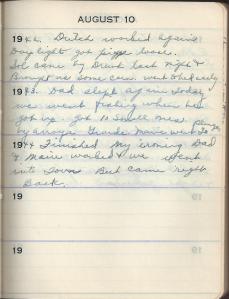 AUGUST 10
1942. Dutch worked again.
Day light got loose.
Joe came by Drunk last night &
Brought us some corn. went to bed early
1943. Dad slept again today
we went fishing when he
got up Got 10 small ones
by arroyo Grande Marie went To
1944 Finished My ironing Dad
& Marie worked & we went
into Town But came right
Back.
19
19